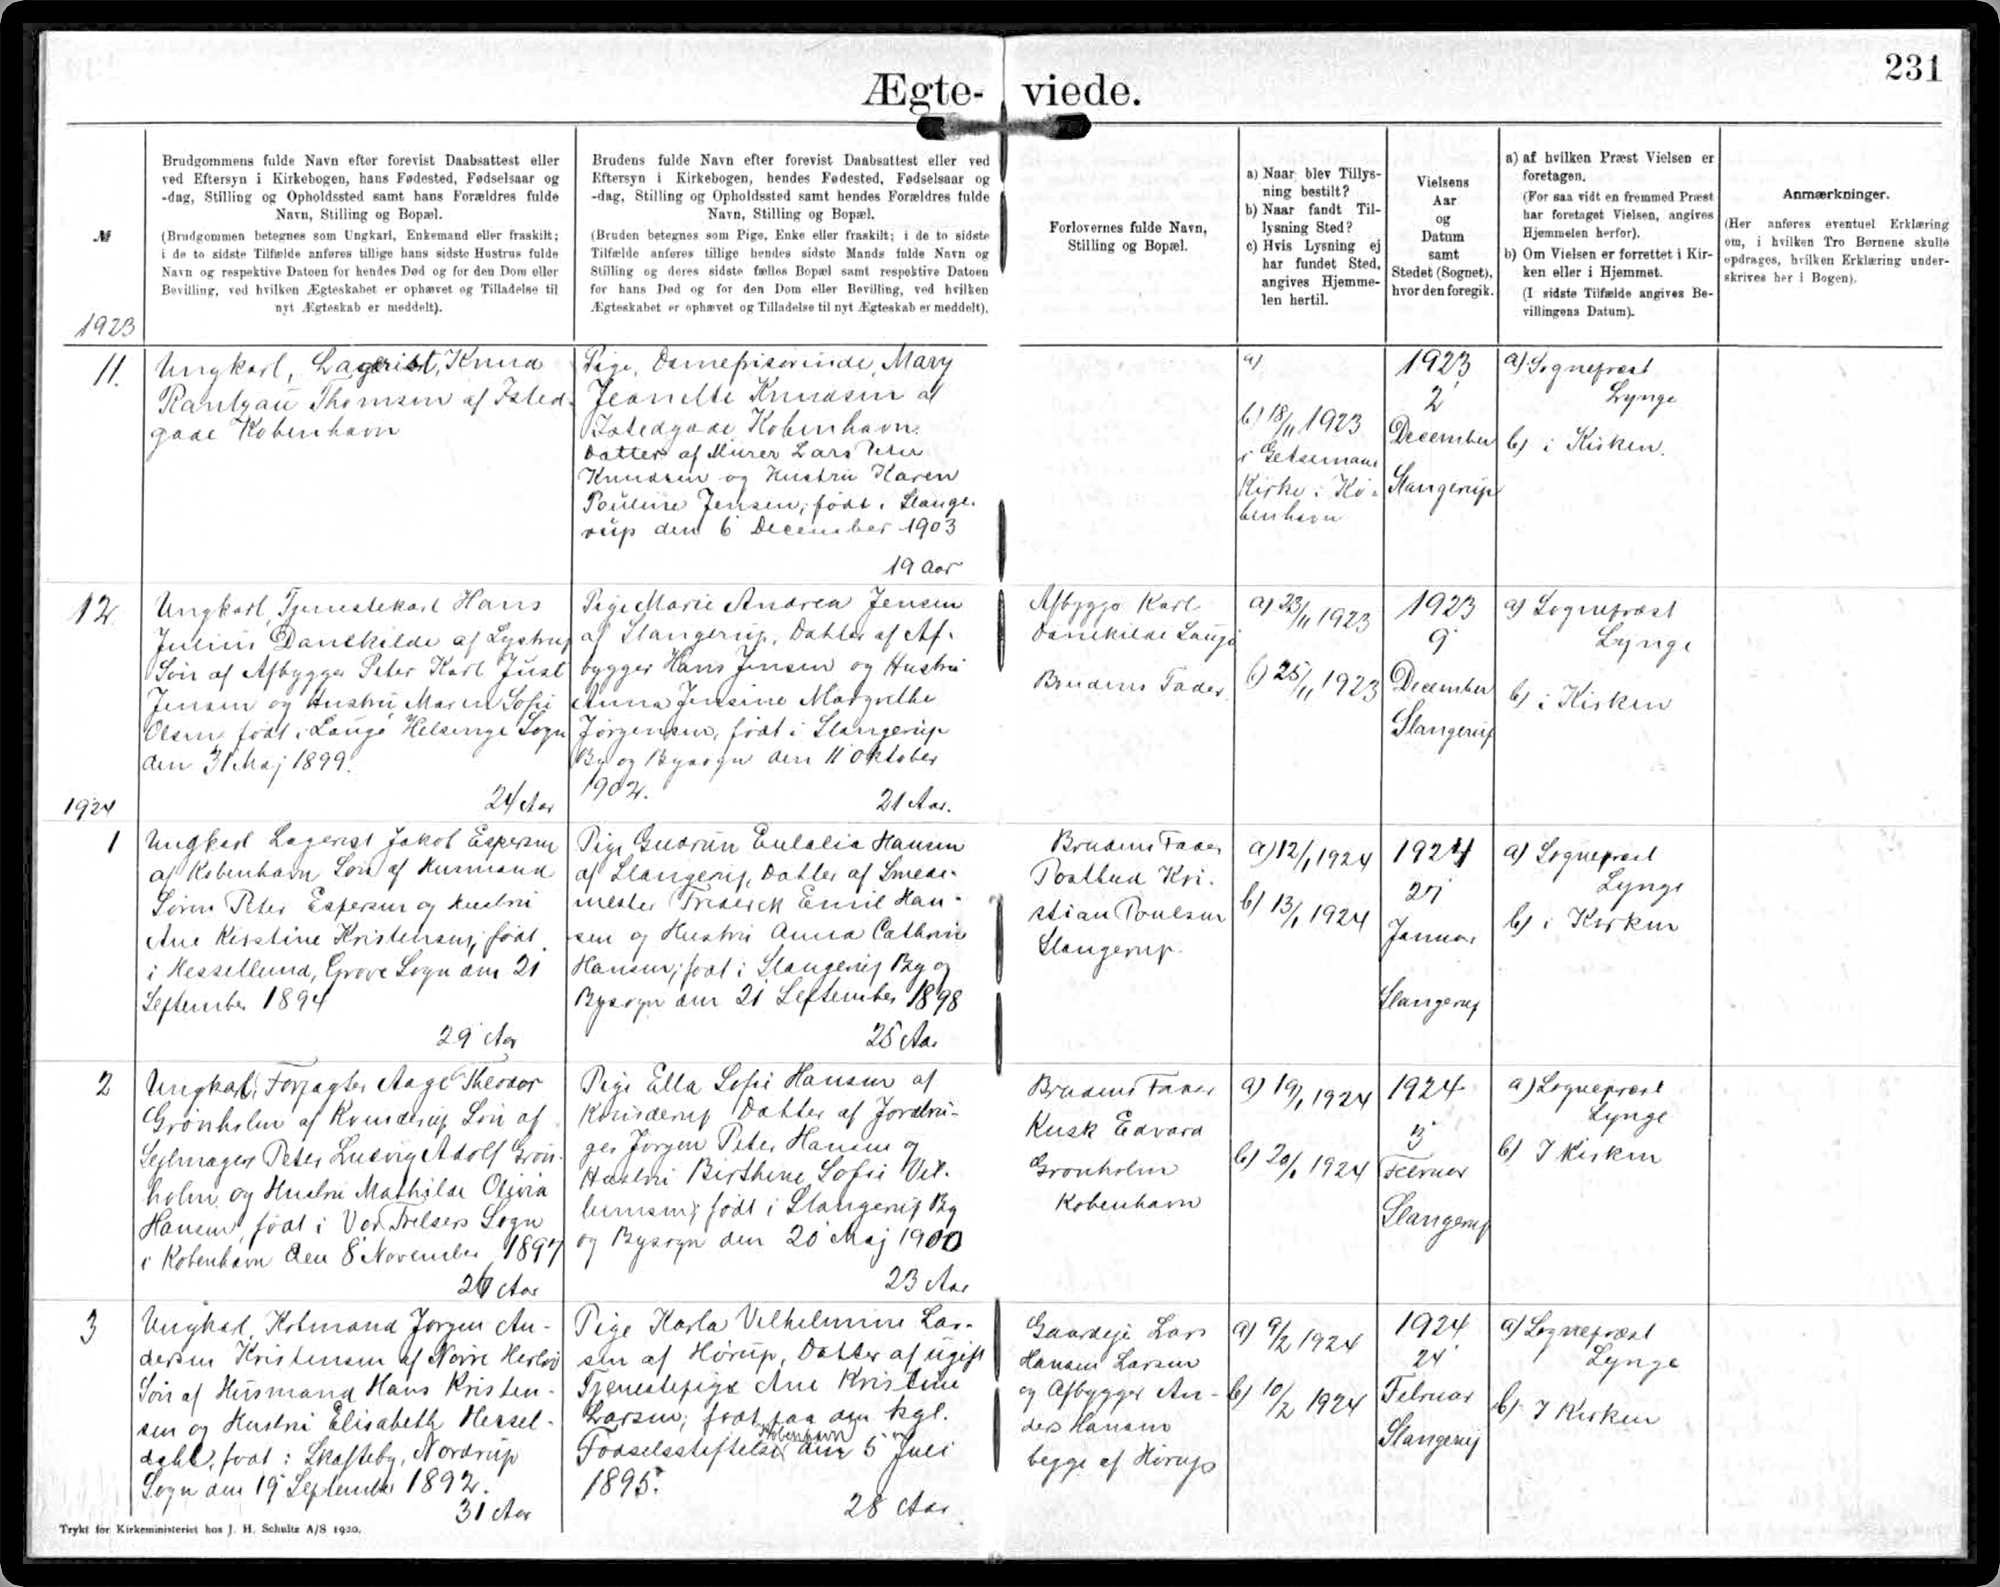 231
Ægte- viede.
№
1923
Brudgommens fulde Navn efter forevist Daabsattest eller
ved Eftersyn i Kirkebogen, hans Fødested, Fødselsaar og
-dag, Stilling og Opholdssted samt hans Forældres fulde
Navn, Stilling og Bopæl.
(Brudgommen betegnes som Ungkarl, Enkemand eller fraskilt;
i de to sidste Tilfælde anføres tillige hans sidste Hustrus fulde
Navn og respektive Datoen for hendes Død og for den Dom eller
Bevilling, ved hvilken Ægteskabet er ophævet og Tilladelse til
nyt Ægteskab er meddelt).
Brudens fulde Navn efter forevist Daabsattest eller ved
Eftersyn i Kirkebogen, hendes Fødested, Fødselsaar og
-dag, Stilling og Opholdssted samt hendes Forældres fulde
Navn, Stilling og Bopæl.
(Bruden betegnes som Pige, Enke eller fraskilt; i de to sidste
Tilfælde anføres tillige hendes sidste Mands fulde Navn og
Stilling og deres sidste fælles Bopæl samt respektive Datoen
for hans Død og for den Dom eller Bevilling, ved hvilken
Ægteskabet er ophævet og Tilladelse til nyt Ægteskab er meddelt).
Forlovernes fulde Navn,
Stilling og Bopæl.
a) Naar blev Tillys-
ning bestilt?
b) Naar fandt Til-
lysning Sted?
c) Hvis Lysning ej
har fundet Sted,
angives Hjemme-
len hertil.
Vielsens
Aar
og
Datum
samt
Stedet (Sognet),
hvor den foregik.
a) af hvilken Præst Vielsen er
foretagen.
(For saa vidt en fremmed Præst
har foretaget Vielsen, angives
Hjemmelen herfor).
b) Om Vielsen er forrettet i Kir-
ken eller i Hjemmet.
(I sidste Tilfælde angives Be-
villingens Datum).
Anmærkninger.
(Her anføres eventuel Erklæring
om, i hvilken Tro Børnene skulle
opdrages, hvilken Erklæring under-
skrives her i Bogen).
11.
Ungkarl, Lagerist, Knud
Rantzau Thomsen af Isted-
gade København
Pige, Damefriserinde, Mary
Jeanette Knudsen af
Istedgade København.
Datter af Murer Lars Peter
Knudsen og Hustru Karen
Pouline Jensen, født i Slange-
rup den 6 December 1903
19 Aar
a)
b) 18/11 1923
i Getsemane
Kirke i Kø-
benhavn
1923
2'
December
Slangerup
a) Sognepræst
Lynge
b) i Kirken.
12.
Ungkarl, Tjenestekarl Hans
Julius Danskilde af Lystrup
Søn af Afbygger Peter Karl Just
Jensen og Hustru Maren Sofie
Olsen, født i Laugø Helsinge Sogn
den 31 Maj 1899.
24 Aar
Pige Marie Andrea Jensen
af Slangerup, Datter af Af-
bygger Hans Jensen og Hustru
Anna Jensine Margrethe
Jørgensen, født i Slangerup
By og Bysogn den 11 Oktober
1902.
21 Aar.
Afbygger Karl
Danskilde Laugø
Brudens Fader.
a) 23/11 1923
b) 25/11 1923
1923
9'
December
Slangerup
a) Sognepræst
Lynge
b) i Kirken
1924
1
Ungkarl Lagerist Jakob Espersen
af København Søn af Husmand
Søren Peter Espersen og Hustru
Ane Kirstine Kristensen, født
i Hessellund, Grove Sogn den 21
September 1894
29 Aar
Pige Gudrun Eulalia Hansen
af Slangerup, Datter af Smede-
mester Frederik Emil Han-
sen og Hustru Anna Cathrine
Hansen, født i Slangerup By og
Bysogn den 21 September 1898
25 Aar
Brudens Fader
Postbud Kri-
stian Poulsen
Slangerup.
a) 12/1 1924
b) 13/1 1924
1924
Januar
Slangerup
a) Sognepræst
Lynge
b) i Kirken
2
Ungkarl, Forpagter Aage Theodor
Grønholm af Kvinderup Søn af
Sejlmager Peter Ludvig Adolf Grøn-
holm og Hustru Mathilde Olivia
Hansen, født i Vor Frelsers Sogn
i København den 8 November 1897
26 Aar
Pige Ella Sofie Hansen af
Kvinderup Datter af Jordbru-
ger Jørgen Peter Hansen og
Hustru Birthine Sofie Vil-
lumsen, født i Slangerup By
og Bysogn den 20 Maj 1900
23 Aar
Brudens Fader
Kusk Edvard
Grønholm
København
a) 19/1 1924
b) 20/1 1924
1924
3'
Februar
Slangerup
a) Sognepræst
Lynge
b) I Kirken
3
Ungkarl, Kolmand Jørgen An-
dersen Kristensen af Nørre Herlev
Søn af Husmand Hans Kristen-
sen og Hustru Elisabeth Hessel-
dahl, født i Skafteby, Nordrup
Sogn den 19 September 1892.
31 Aar
Pige Karla Vilhelmine Lar-
sen af Hørup, Datter af ugift
Tjenestepige Ane Kristine
Larsen, født paa den kgl.
Fødselsstiftelse København den 5 Juli
1895.
28 Aar.
Gaardejer Lars
Hansen Larsen
og Afbygger An-
ders Hansen
begge af Hørup
a) 9/2 1924
b) 10/2 1924
1924
24'
Februar
Slangerup
a) Sognepræst
Lynge
b) I Kirken
Trykt for Kirkeministeriet hos J. H. Schultz A/S 1920.